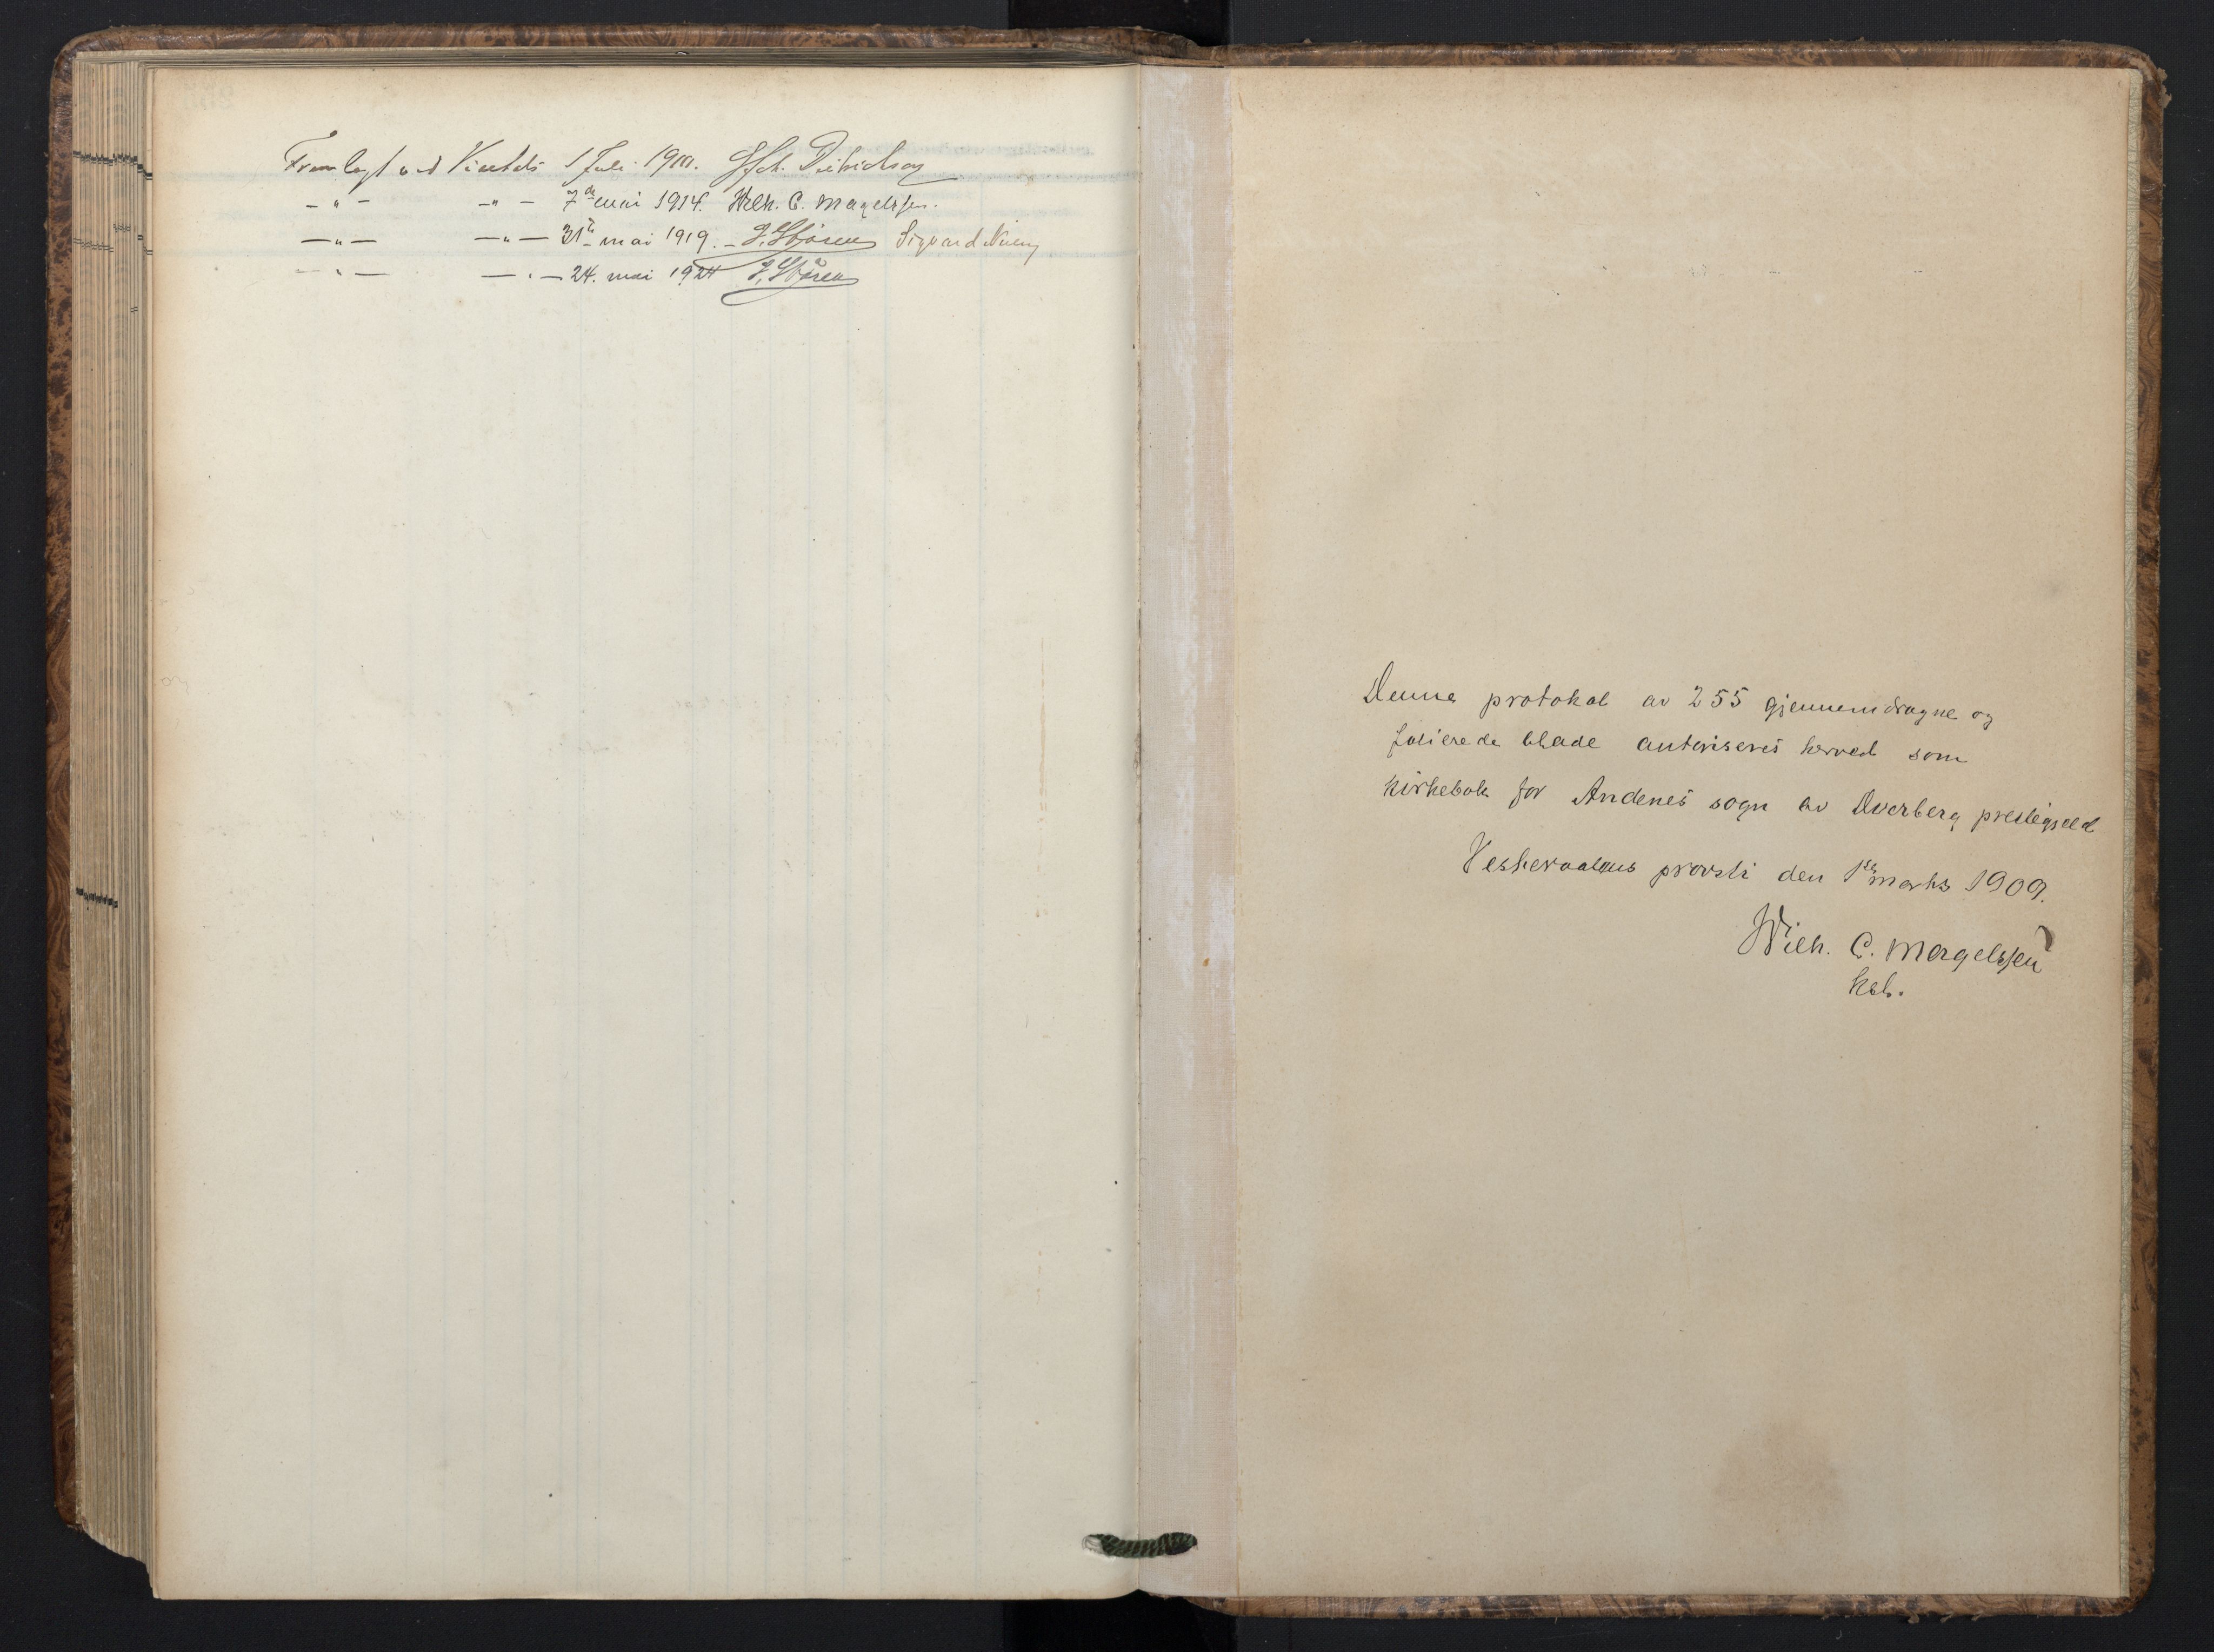 Fremlagt ved Visitats 1 Juli 1910.
— " — — " — 7de mai 1914. Wilh. C. Magelssen.
— " — — " — 31te mai 1919. J. Støren Sigvard
— " — — " — 24. mai 1924 J. Støren
Denne protokol av 255 gjennemdragne og
folierede blade autoriseres herved som
kirkebok for Andenes sogn av Dverberg prestegjeld
Vesteraalens provsti den 1ste marts 1909.
Wilh. C. Magelssen